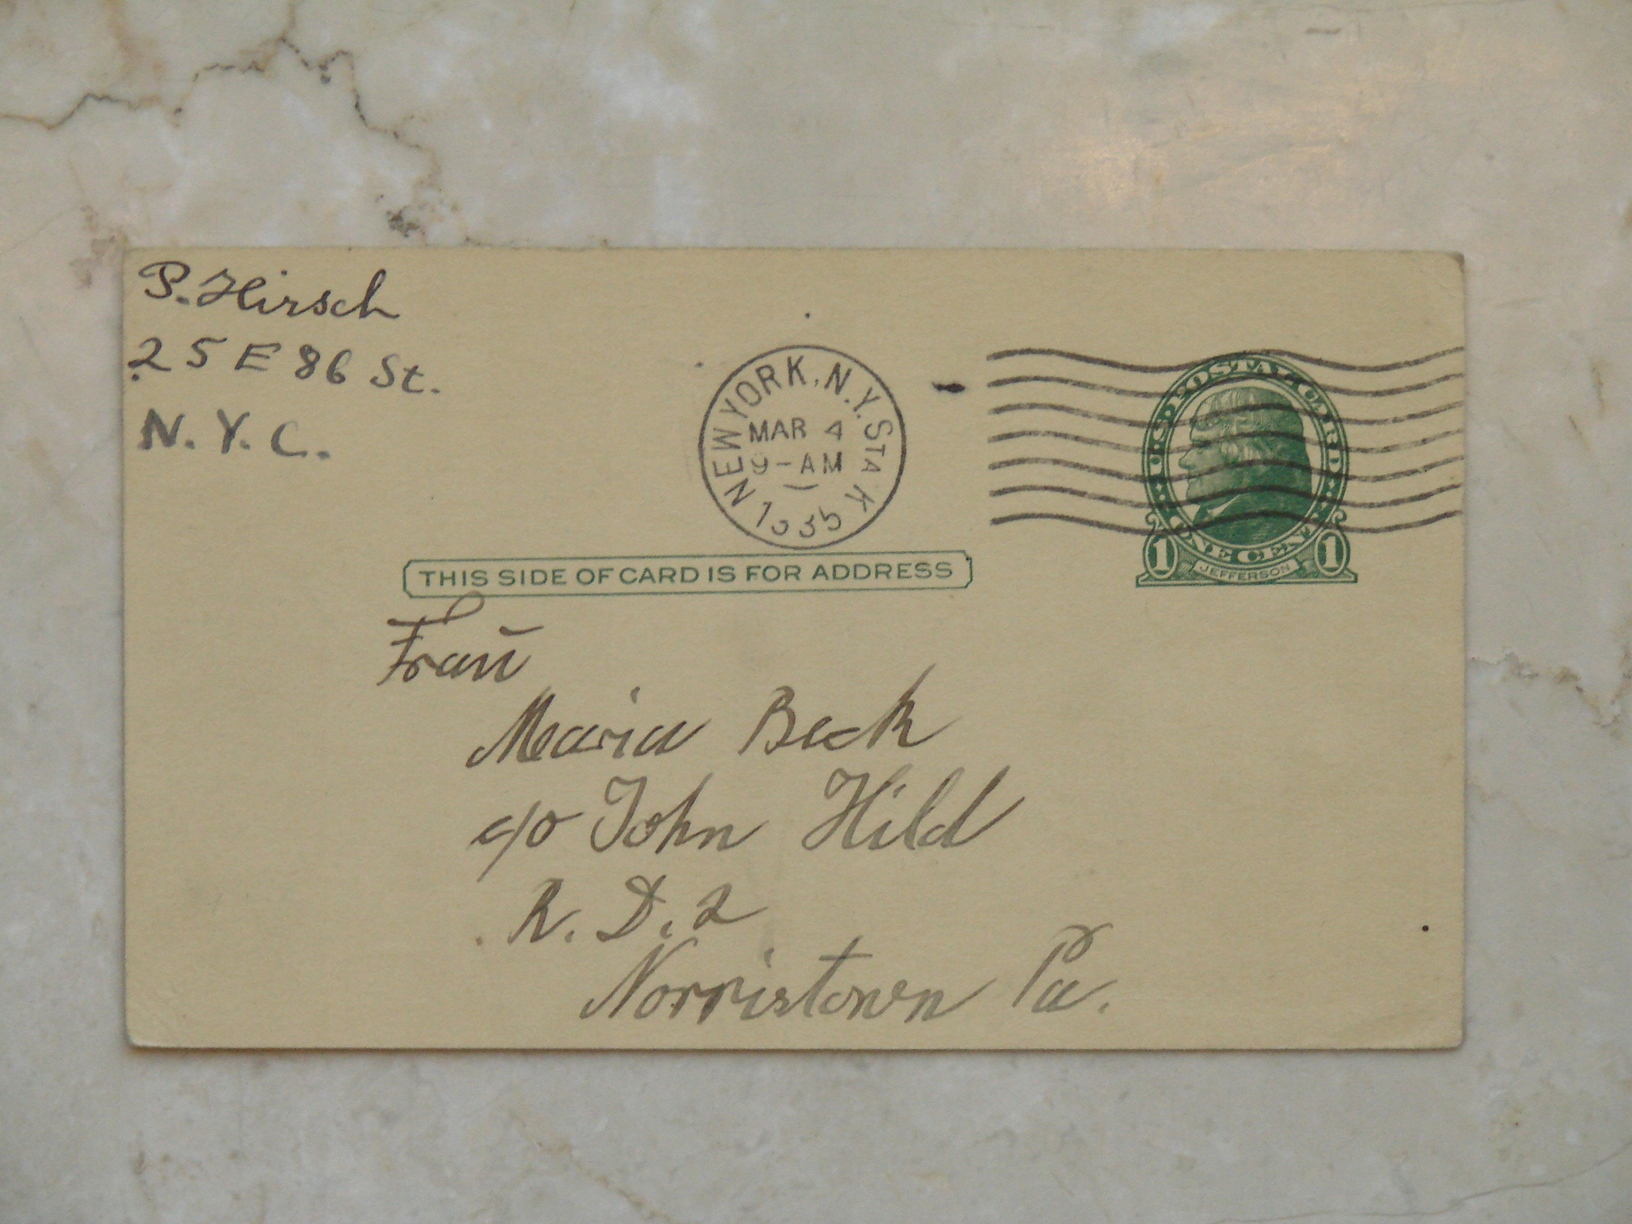 P. Hirsch
25 E 86 St.
N. Y. C.
NEW YORK, N.Y. STA K
MAR 4
9-AM
1935
U·S·POSTAL CARD
ONE CENT
1 JEFFERSON 1
THIS SIDE OF CARD IS FOR ADDRESS
Frau
Maria Beck
c/o John Hild
R. D. 2
Norristown Pa.